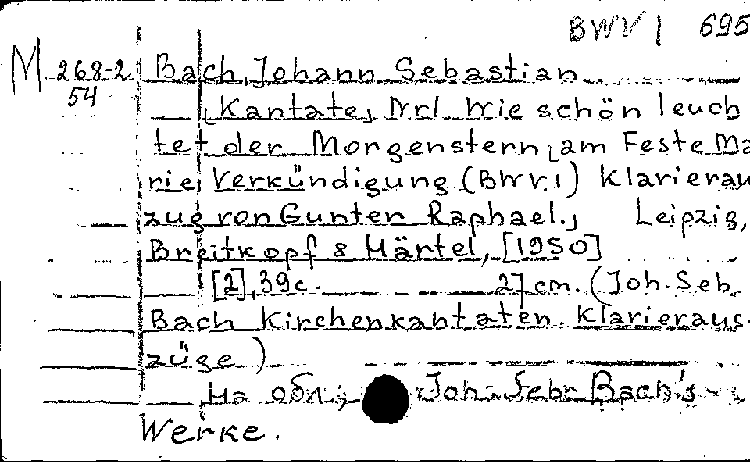 BWV 1 695
M 268-2 Bach, Johann Sebastian
54 [Kantate, Nr1 Wie schön leuch
tet der Morgenstern, am Feste Ma
rie Verkündigung (BWV.1) Klavierau
zug von Gunter Raphael.] Leipzig,
Breitkopf & Härtel, [1950]
[2], 39c. 27cm. (Joh. Seb.
Bach Kirchenkantaten. Klavieraus-
züge)
На обл.: Joh. Sebr Bach's
Werke.